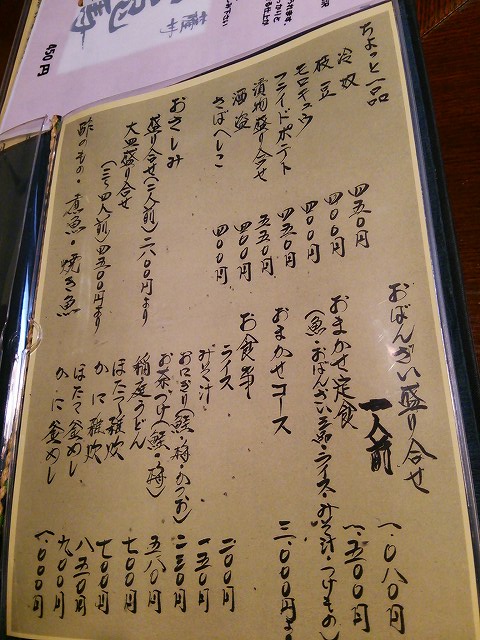 450円
ちょっと一品
冷奴 四五0円
枝豆 四00円
モロキュウ 四00円
フライドポテト 四五0円
漬物盛り合せ 五五0円
酒盗 四00円
さばへしこ 四00円
おさしみ
盛り合せ(二人前)二八00円より
大皿盛り合せ
(三〜四人前)四五00円より
酢のもの・煮魚・焼き魚
おばんざい盛り合せ
一人前 一、0八0円
おまかせ定食 一、五00円
(魚・おばんざい三品・ライス・みそ汁・つけもの)
おまかせコース 三、000円よ
お食事
ライス 二00円
みそ汁 一五0円
おにぎり(鮭・梅・かつお) 二三0円
お茶づけ(鮭・梅) 五八0円
稲庭うどん 七00円
ほたて雑炊 七00円
かに雑炊 八五0円
ほたて釜めし 九00円
かに釜めし 一、000円